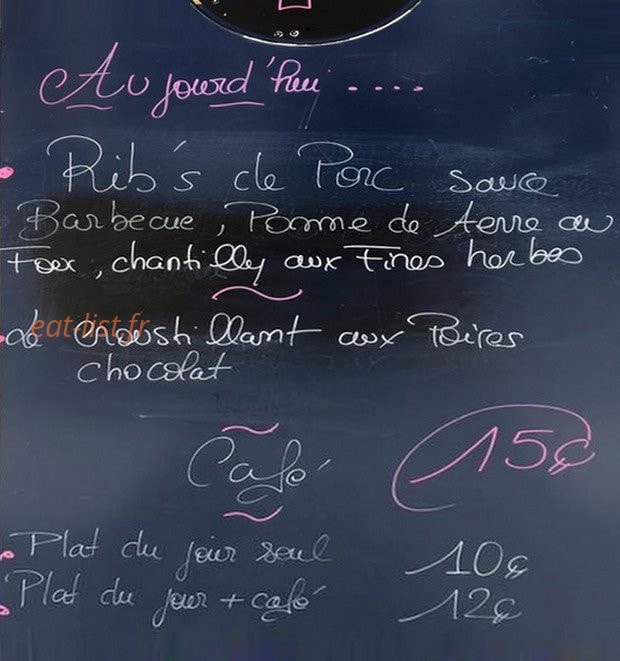 Aujourd'hui ....
Rib's de Porc sauce
Barbecue, Pomme de terre au
Four, chantilly aux Fines herbes
eat-list.fr
Le croustillant aux Poires
chocolat
Café 15€
Plat du jour seul 10€
Plat du jour + café 12€